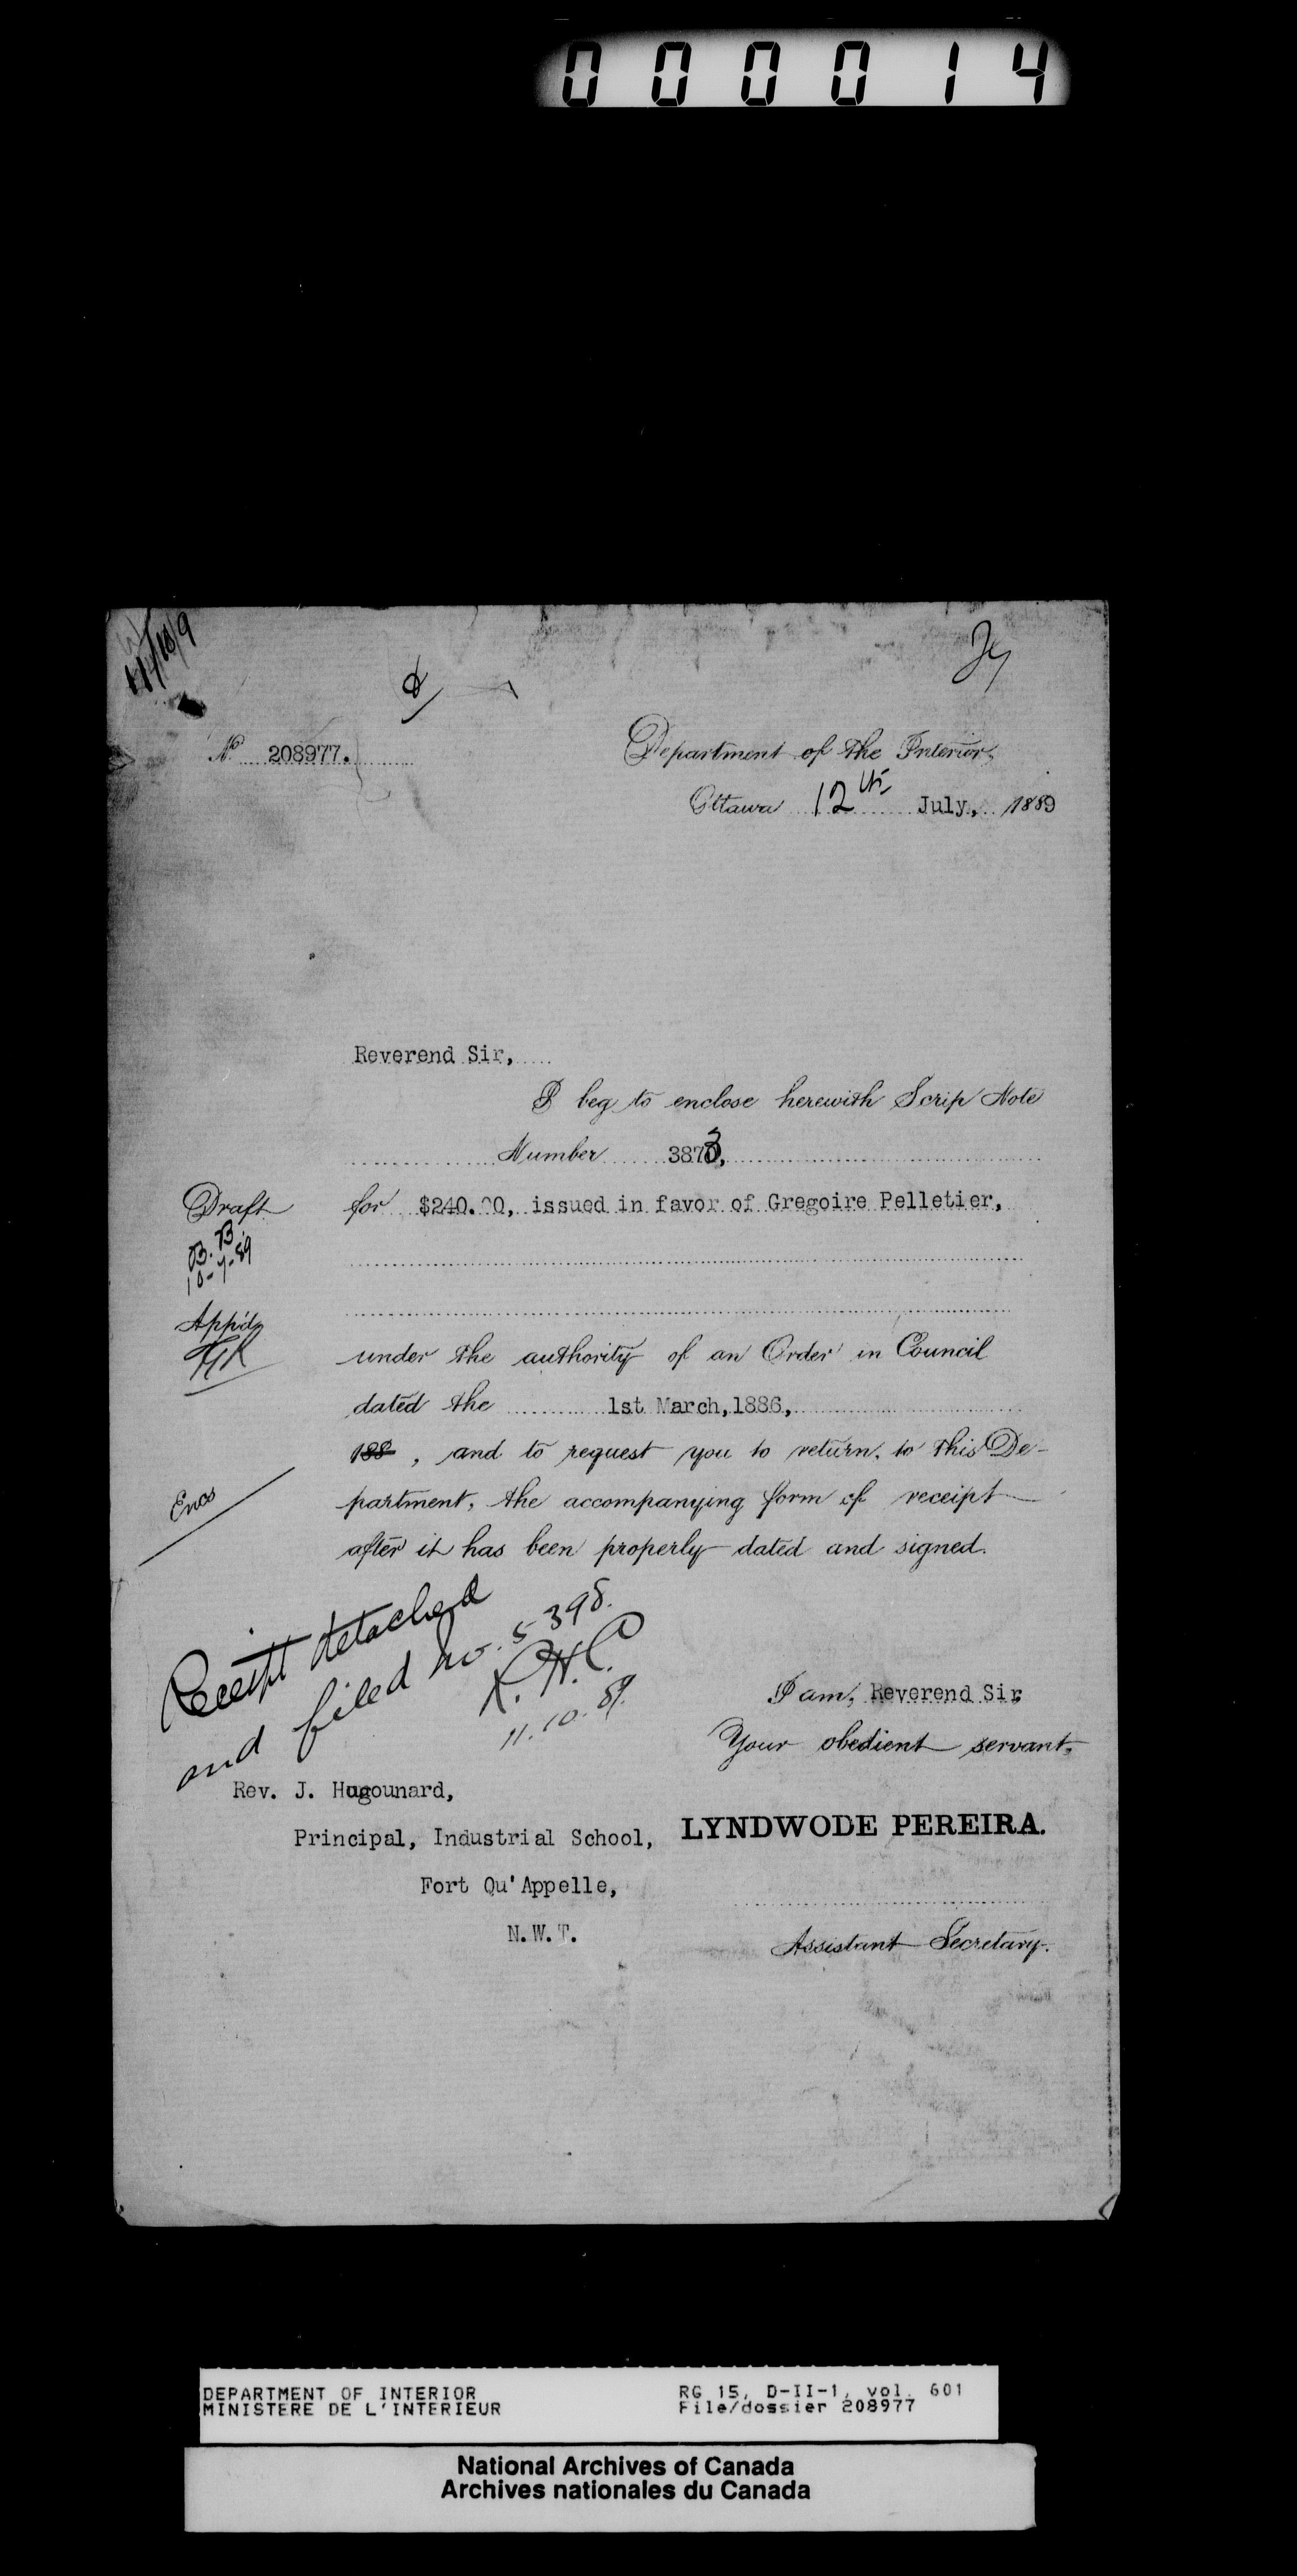 000014
No 208977.
Department of the Interior,
Ottawa 12th July, 1889
Reverend Sir,
I beg to enclose herewith Scrip Note
Number 3873,
Draft
for $240.00, issued in favor of Gregoire Pelletier,
B.B.
10-7-89
App'd
under the authority of an Order in Council
dated the 1st March, 1886,
188 , and to request you to return, to this De-
Encs
partment, the accompanying form of receipt
after it has been properly dated and signed.
Receipt detached
and filed no. 5398.
11.10.89.
I am, Reverend Sir,
Your obedient servant,
Rev. J. Hugounard,
LYNDWODE PEREIRA.
Principal, Industrial School,
Fort Qu'Appelle,
N.W.T.
Assistant Secretary.
DEPARTMENT OF INTERIOR
MINISTERE DE L'INTERIEUR
RG 15, D-II-1, vol. 601
File/dossier 208977
National Archives of Canada
Archives nationales du Canada